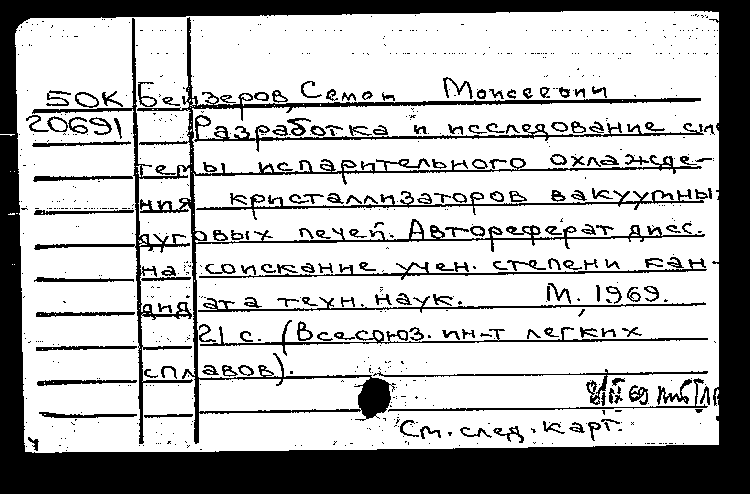 50К Бейзеров, Семон Моисеевич
20691 Разработка и исследование сис
темы испарительного охлажде-
ния кристаллизаторов вакуумных
дуговых печей. Автореферат дисс.
на соискание учен. степени кан-
дидата техн. наук. М., 1969.
21 с. (Всесоюз. ин-т легких
сплавов).
8/IX 69
См. след. карт.